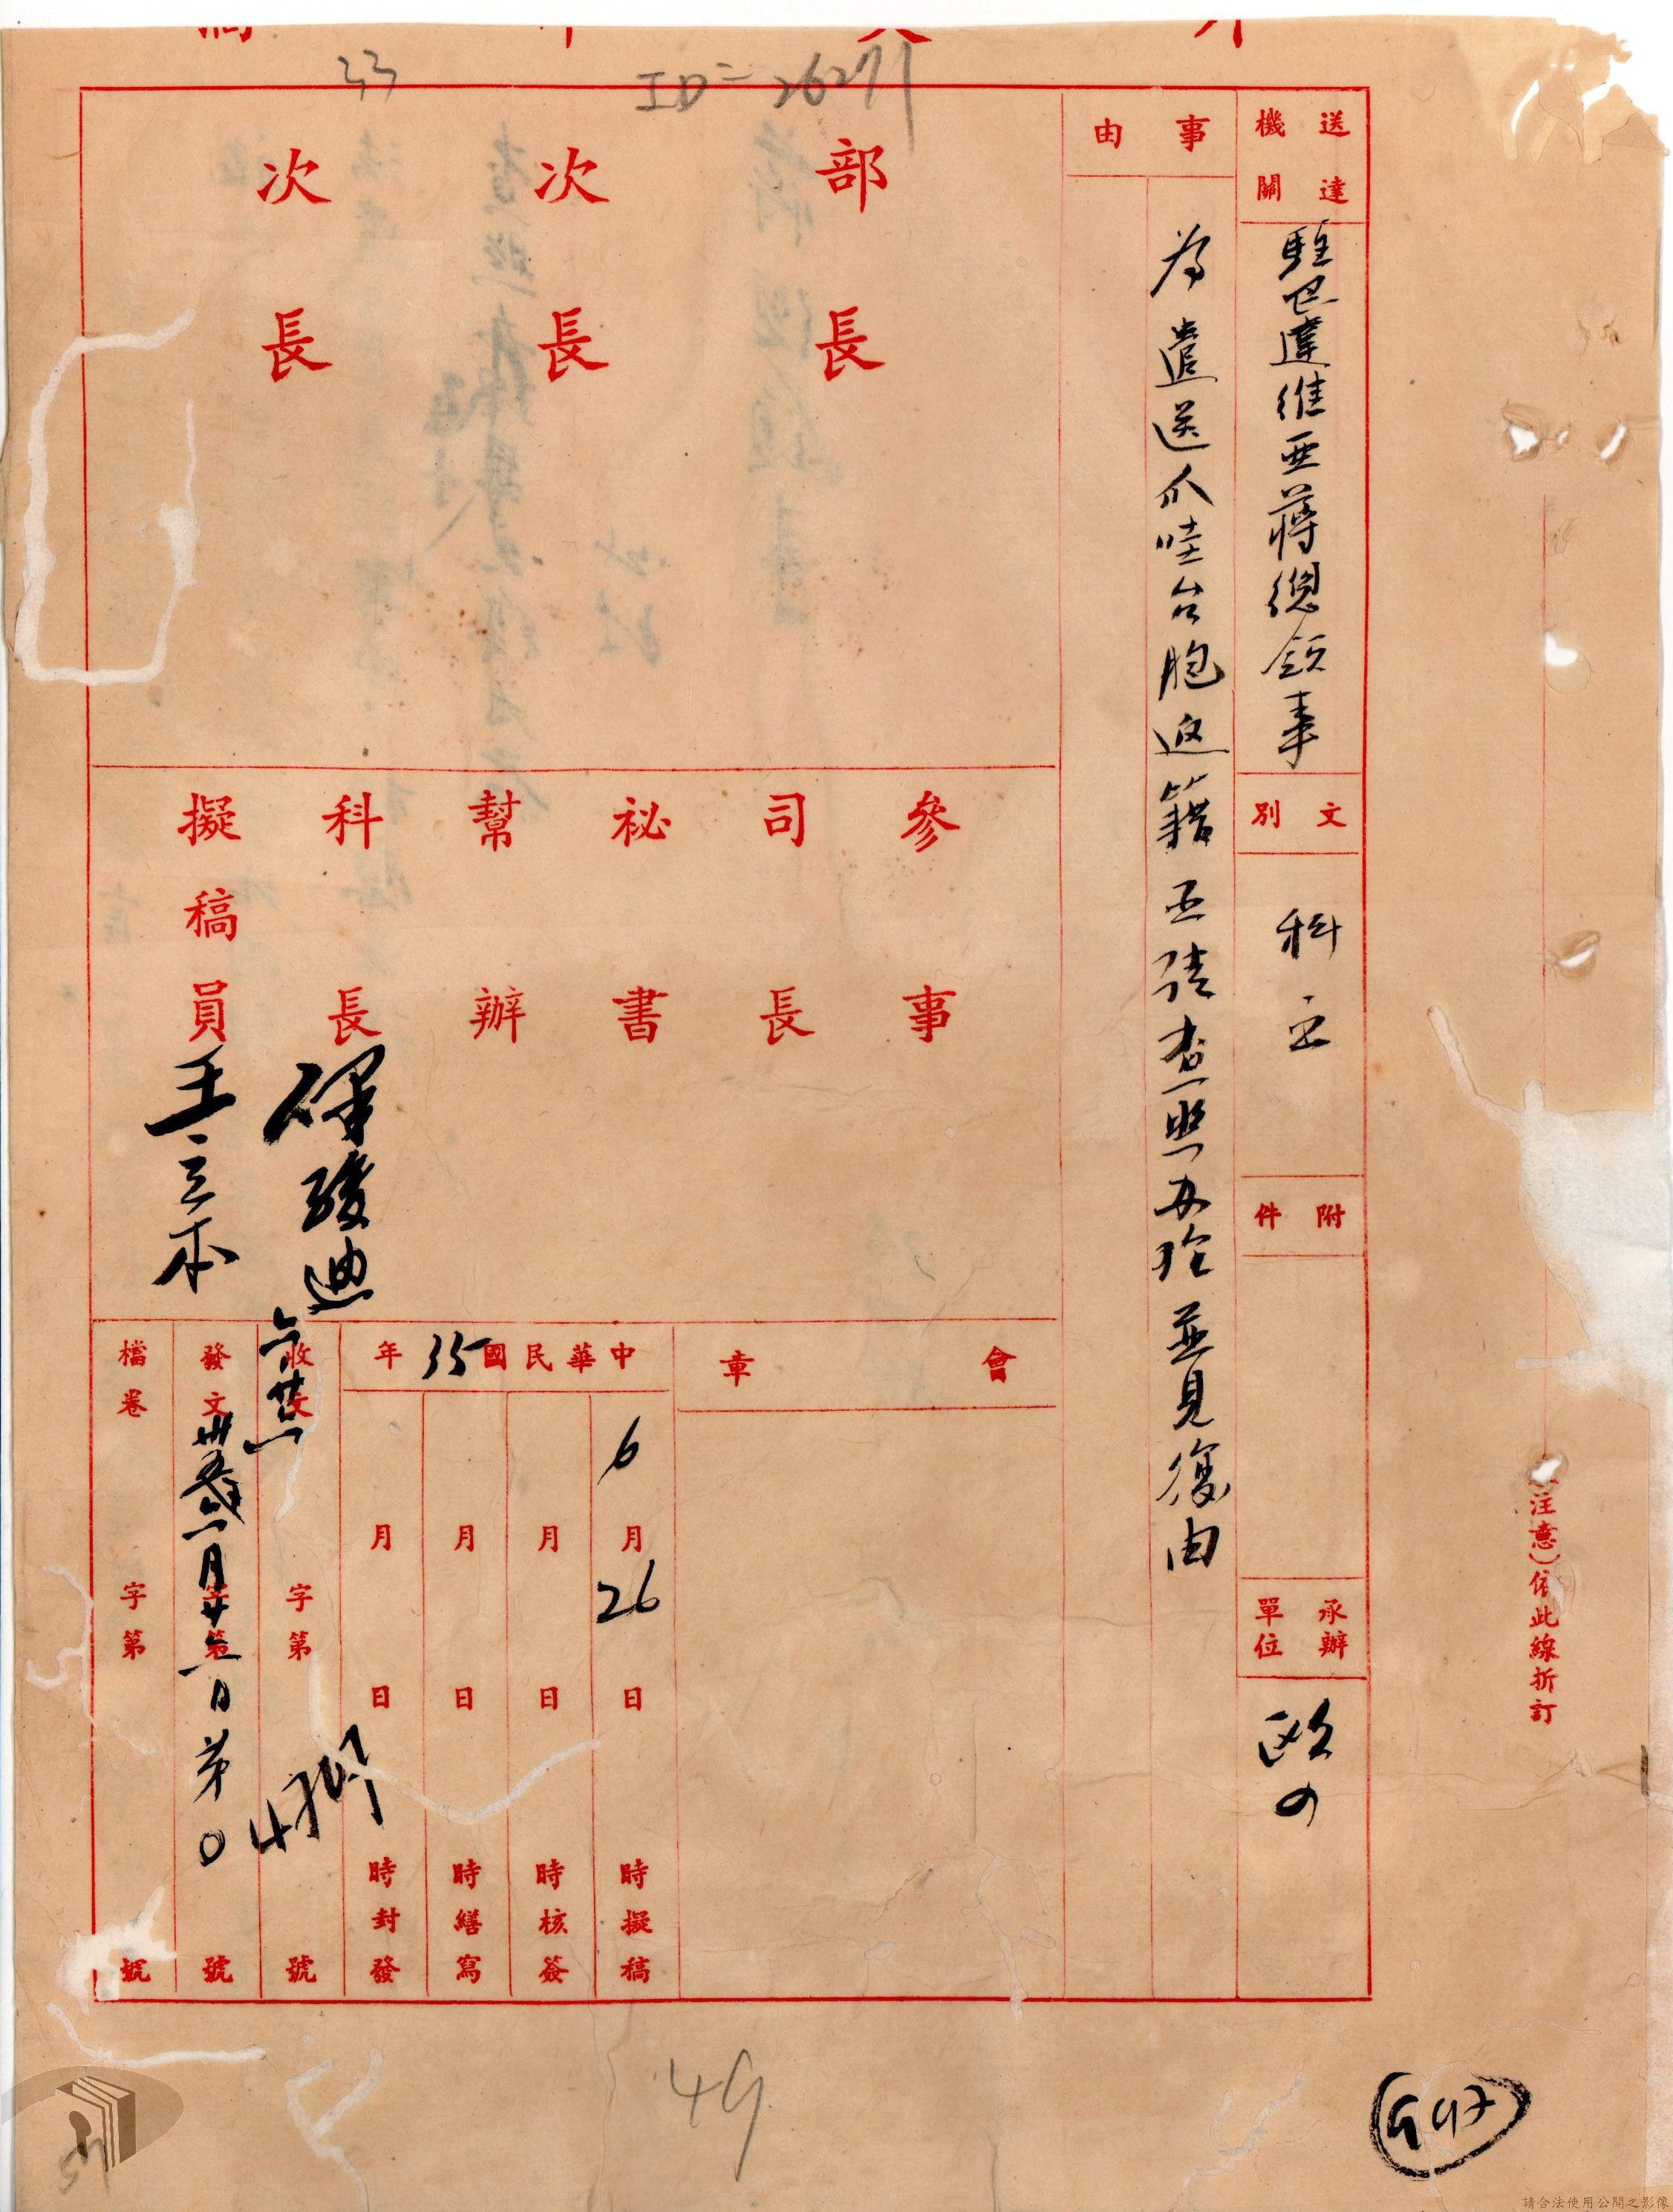 33
ID=26271
送達機關
駐巴達維亞蔣總領事
文別
科
附件
承辦單位
歐四
事由
為遣送爪哇台胞返籍函請查照办理並見復由
部長
次長
次長
參事
司長
秘書
幫辦
科長
擬稿員
王立本
會章
中華民國35年
6月26日時擬稿
月日時核簽
月日時繕寫
月日時封發
收文字第號
六廿六
發文字第號
卅五年六月廿六日第0
檔卷字第號
(注意)依此線折訂
49
57
請合法使用公開之影像